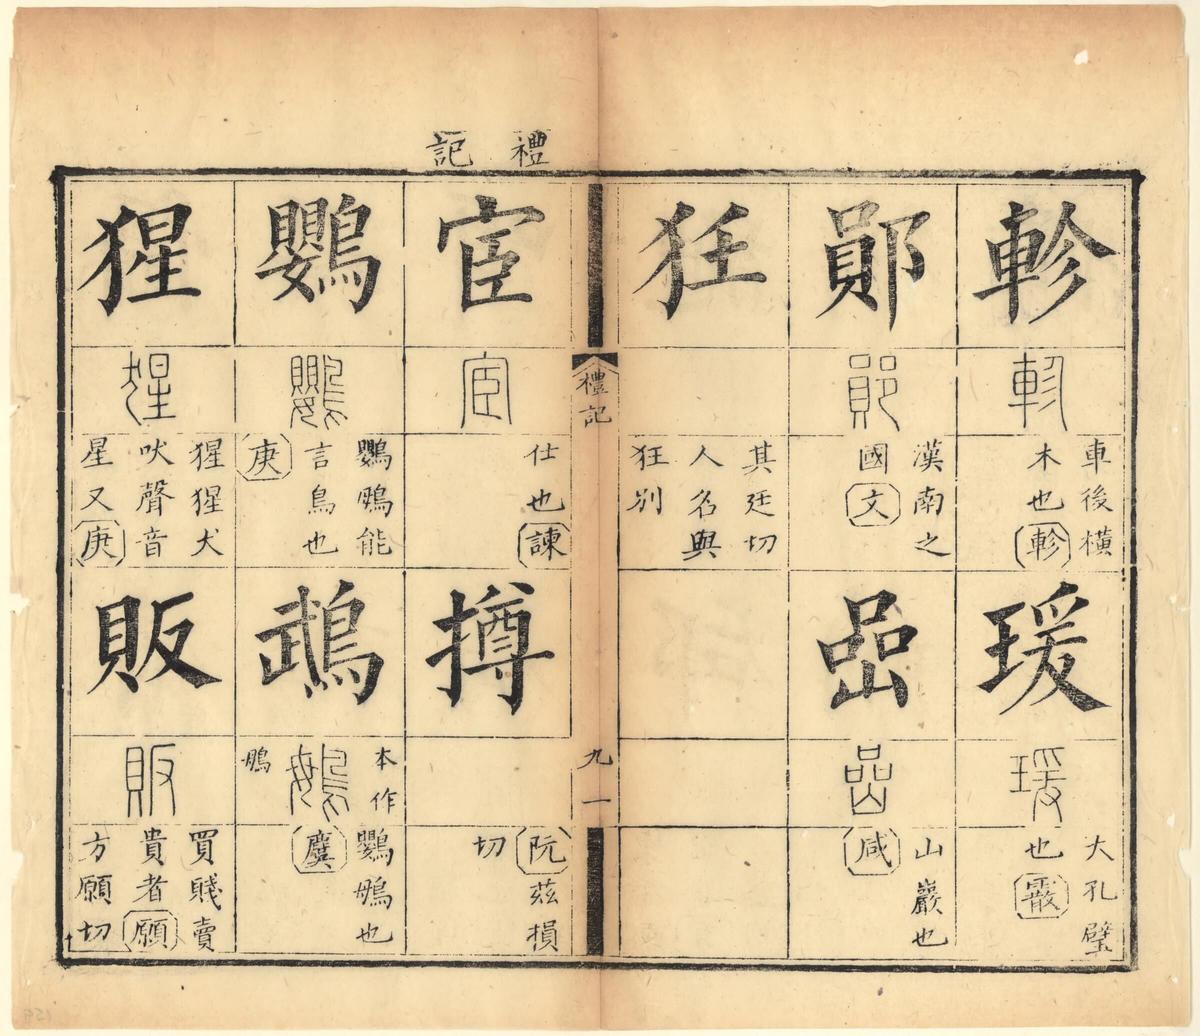 軫
軫
車後橫
木也軫
瑗
瑗
大孔璧
也霰
鄖
鄖
漢南之
國文
嵒
嵒
山巖也
咸
狅
其廷切
人名與
狂別
禮記
九一
禮記
宦
宦
仕也諫
撙
阮茲損
切
鸚
鸚
鸚䳇能
言鳥也
庚
鵡
本作
䳇
䳇
鸚䳇也
麌
猩
猩
猩猩犬
吠聲音
星又庚
販
販
買賤賣
貴者願
方願切